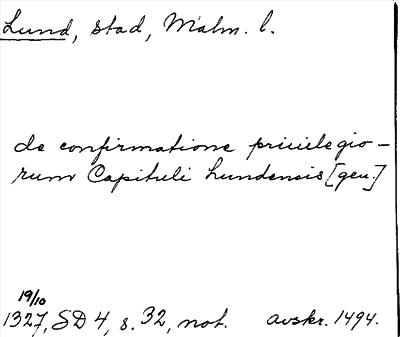 Lund, stad, Malm. l.
de confirmatione priuilegio-
rum Capituli Lundensis [gen.]
19/10
1327, SD 4, s. 32, not. avskr. 1494.